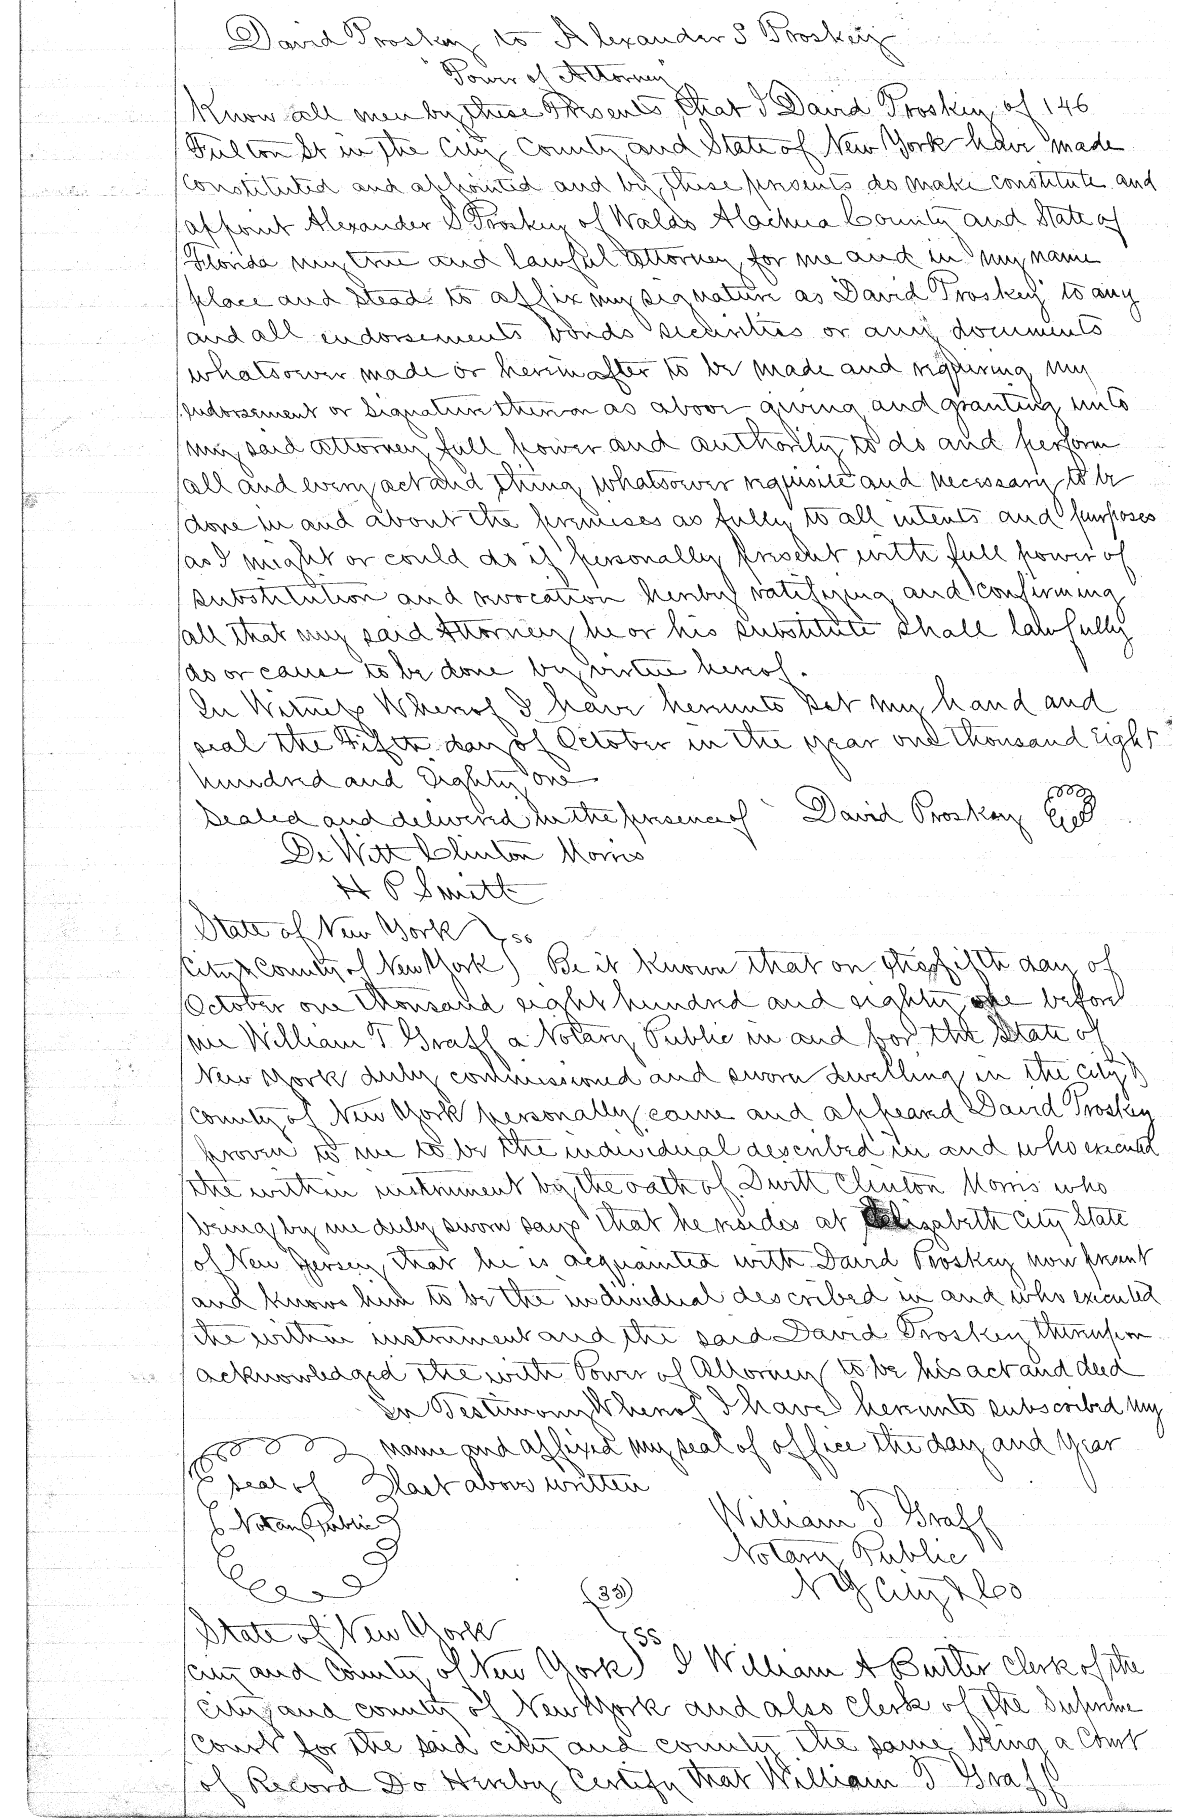 David Proskey to Alexander S Proskey
"Power of Attorney"
Know all men by these Presents that I David Proskey of 146
Fulton St in the City County and State of New York have made
constituted and appointed and by these presents do make constitute and
appoint Alexander S Proskey of Waldo Alachua County and State of
Florida my true and lawful attorney for me and in my name
place and stead to affix my signature as "David Proskey" to any
and all endorsements bonds securities or any documents
whatsoever made or hereinafter to be made and requiring my
endorsement or signature thereon as above giving and granting unto
my said attorney full power and authority to do and perform
all and every act and thing whatsoever requisite and necessary to be
done in and about the premises as fully to all intents and purposes
as I might or could do if personally present with full power of
substitution and revocation hereby ratifying and confirming
all that my said Attorney he or his substitute shall lawfully
do or cause to be done by virtue hereof.
In Witness Whereof I have hereunto set my hand and
seal the Fifth day of October in the year one thousand Eight
hundred and Eighty one
Sealed and delivered in the presence of David Proskey Seal
De Witt Clinton Morris
H P Smith
State of New York } ss
City & County of New York ) Be it known that on the fifth day of
October one thousand eight hundred and eighty one before
me William T Graff a Notary Public in and for the State of
New York duly commissioned and sworn dwelling in the city &
county of New York personally came and appeared David Proskey
proven to me to be the individual described in and who executed
the within instrument by the oath of Dwitt Clinton Morris who
being by me duly sworn says that he resides at Elizabeth City State
of New Jersey that he is acquainted with David Proskey now present
and knows him to be the individual described in and who executed
the within instrument and the said David Proskey thereupon
acknowledged the with Power of Attorney to be his act and deed
In Testimony Whereof I have hereunto subscribed my
name and affixed my seal of office the day and year
seal of last above written
Notary Public
William T Graff
Notary Public
N Y City & Co
(33)
State of New York
City and County of New York } ss I William A Butler Clerk of the
City and county of New York and also Clerk of the Supreme
Court for the said city and county the same being a Court
of Record Do Hereby Certify that William T Graff